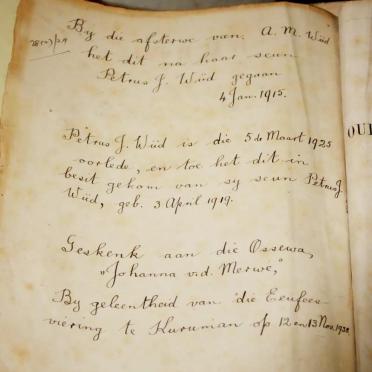 By die afsterwe van, A. M. Wüd
het dit na haar seun
Petrus J. Wüd gegaan
4 Jan. 1915.
Petrus J. Wüd is die 5de Maart 1925
oorlede, en toe het dit in
besit gekom van sy seun Petrus J.
Wüd, geb. 3 April 1919.
Geskenk aan die Ossewa,
"Johanna v.d. Merwe,"
By geleentheid van die Eeufees-
viering te Kuruman op 12 en 13 Nov. 1938.
OU